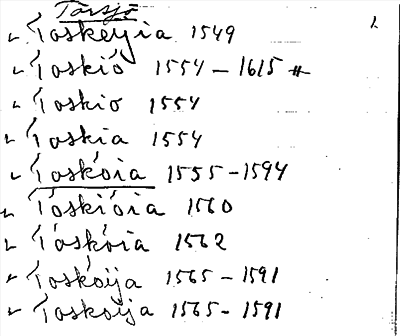 Torsjö
L
" Toskeyia 1549
" Toskiö 1554 – 1615 #
" Toskio 1554
" Toskia 1554
" Toskóia 1555 – 1594
" Tóskióia 1560
" Tóskóia 1562
" Toskoija 1565 – 1591
" Toskoija 1565 – 1591